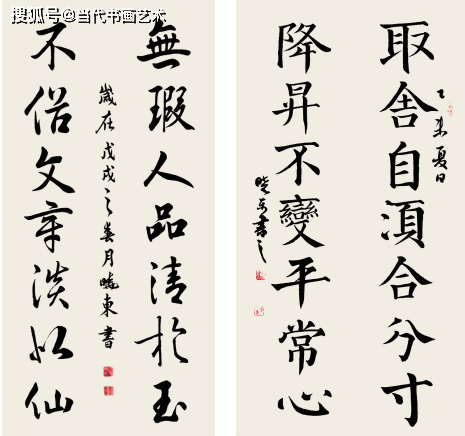 搜狐号@当代书画艺术
取舍自湏合分寸
乙未夏日
降昇不變平常心
曉东書之
無瑕人品清於玉
歲在戊戌之春月曉東書
不俗文章淡似仙